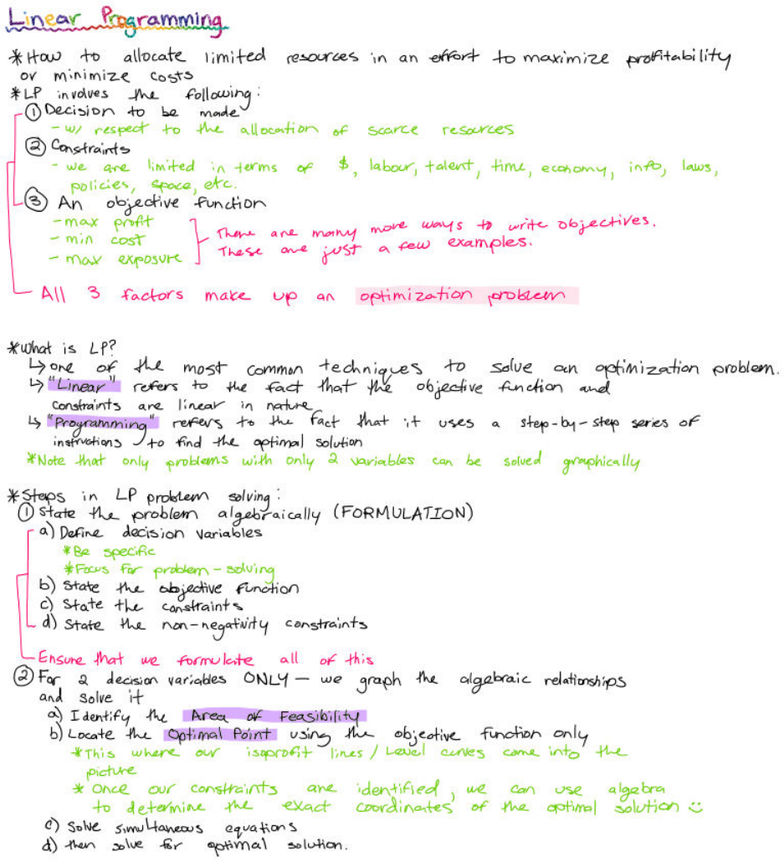 Linear Programming
*How to allocate limited resources in an effort to maximize profitability
or minimize costs
*LP involves the following:
① Decision to be made
- w/ respect to the allocation of scarce resources
② Constraints
- we are limited in terms of $, labour, talent, time, economy, info, laws,
policies, space, etc.
③ An objective function
- max profit
- min cost
- max exposure
There are many more ways to write objectives.
These are just a few examples.
All 3 factors make up an optimization problem
*What is LP?
↳ one of the most common techniques to solve an optimization problem.
↳ "Linear" refers to the fact that the objective function and
constraints are linear in nature
↳ "Programming" refers to the fact that it uses a step-by-step series of
instructions to find the optimal solution
*Note that only problems with only 2 variables can be solved graphically
*Steps in LP problem solving:
① State the problem algebraically (FORMULATION)
a) Define decision variables
*Be specific
*Focus for problem-solving
b) State the objective function
c) State the constraints
d) State the non-negativity constraints
Ensure that we formulate all of this
② For 2 decision variables ONLY — we graph the algebraic relationships
and solve it
a) Identify the Area of Feasibility
b) Locate the Optimal Point using the objective function only
*This where our isoprofit lines / Level curves come into the
picture
* Once our constraints are identified, we can use algebra
to determine the exact coordinates of the optimal solution ☺
c) Solve simultaneous equations
d) then solve for optimal solution.